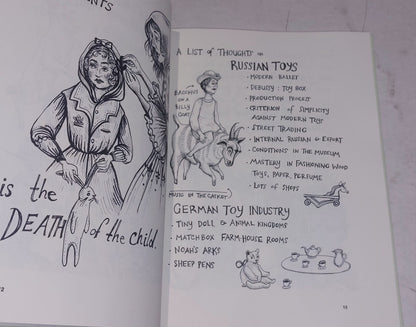 ENTS
is the
DEATH of the child.
12
A LIST OF THOUGHTS on
RUSSIAN TOYS
• MODERN BALLET
• DEBUSSY: TOY BOX
• PRODUCTION PROCESS
• CRITERION OF SIMPLICITY
AGAINST MODERN TOYS
• STREET TRADING
• INTERNAL RUSSIAN & EXPORT
• CONDITIONS IN THE MUSEUM
• MASTERY IN FASHIONING WOOD
TOYS, PAPER, PERFUME
• LOTS OF SHOPS
BADLANDS
ON A
BILLY
GOAT
MUSIC IN THE CASKET
GERMAN TOY INDUSTRY
• TINY DOLL & ANIMAL KINGDOMS
• MATCHBOX FARM-HOUSE ROOMS
• NOAH'S ARKS
• SHEEP PENS
13